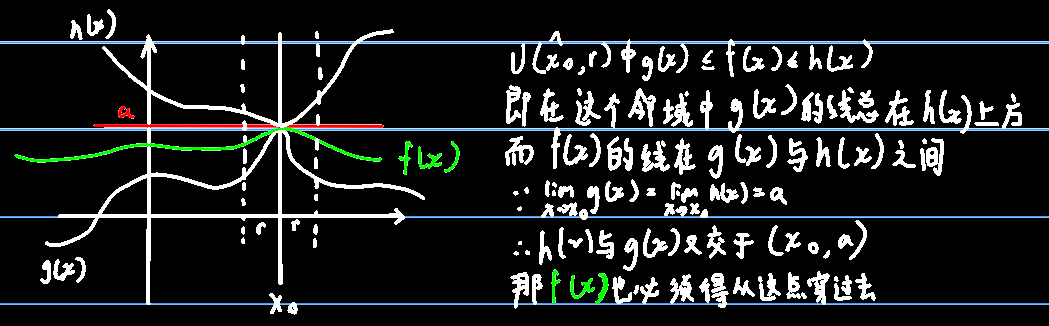 h(x)
a
f(x)
g(x)
r r
x₀
U(x̂₀,r)中g(x)≤f(x)≤h(x)
即在这个邻域中g(x)的线总在h(x)上方
而f(x)的线在g(x)与h(x)之间
∵ lim x→x₀ g(x)=lim x→x₀ h(x)=a
∴h(x)与g(x)又交于(x₀,a)
那f(x)也必须得从这点穿过去